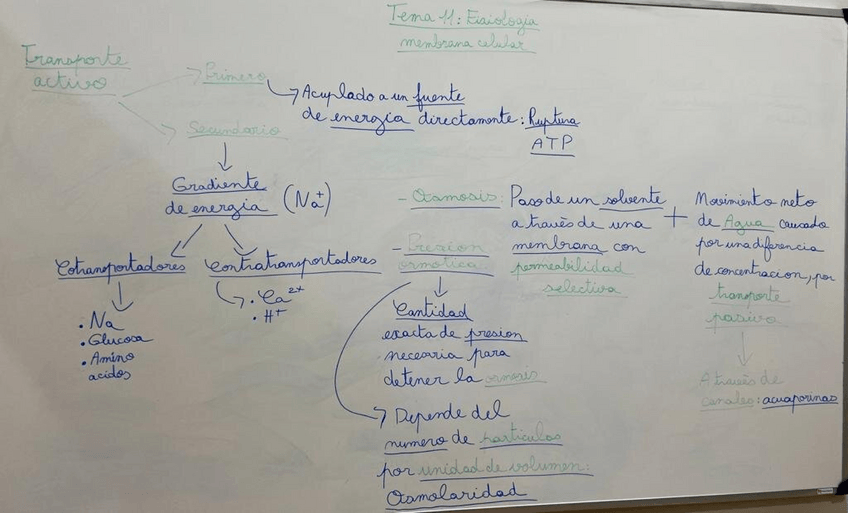 Tema 11: Fisiología
membrana celular
Transporte
activo
Primero
Acuplado a un fuente
de energía directamente: Ruptura
ATP
Secundario
Gradiente
de energía (Na+)
Cotransportadores
• Na
• Glucosa
• Amino
acidos
Contratransportadores
• Ca2+
• H+
- Osmosis: Paso de un solvente
a través de una
membrana con
permeabilidad
selectiva
+
Movimiento neto
de Agua causado
por una diferencia
de concentracion, por
transporte
pasivo
A través de
canales: acuaporinas
- Presion
osmotica
Cantidad
exacta de presion
necesaria para
detener la osmosis
Depende del
numero de particulas
por unidad de volumen:
Osmolaridad